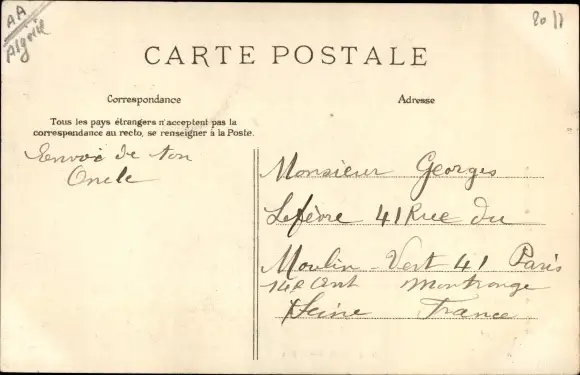 AA
Algérie
CARTE POSTALE
Correspondance
Adresse
Tous les pays étrangers n'acceptent pas la
correspondance au recto, se renseigner à la Poste.
Envoi de ton
Oncle
Monsieur Georges
Lefèvre 41 Rue du
Moulin-Vert 41 Paris
14e Montrouge
Seine France